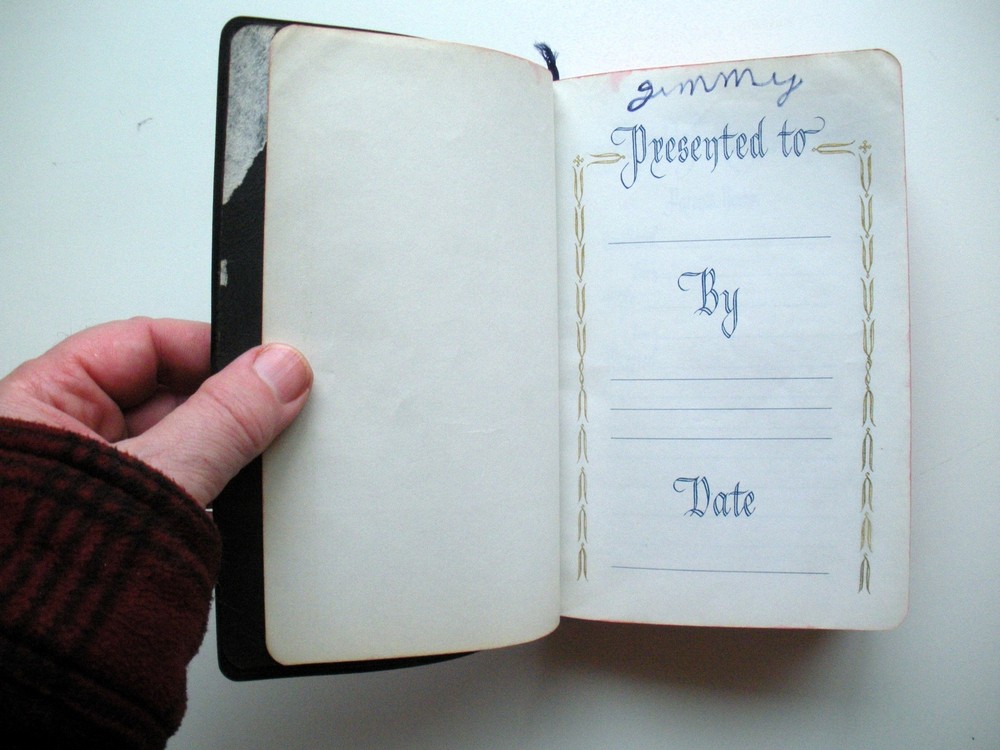 Jimmy
Presented to
By
Date